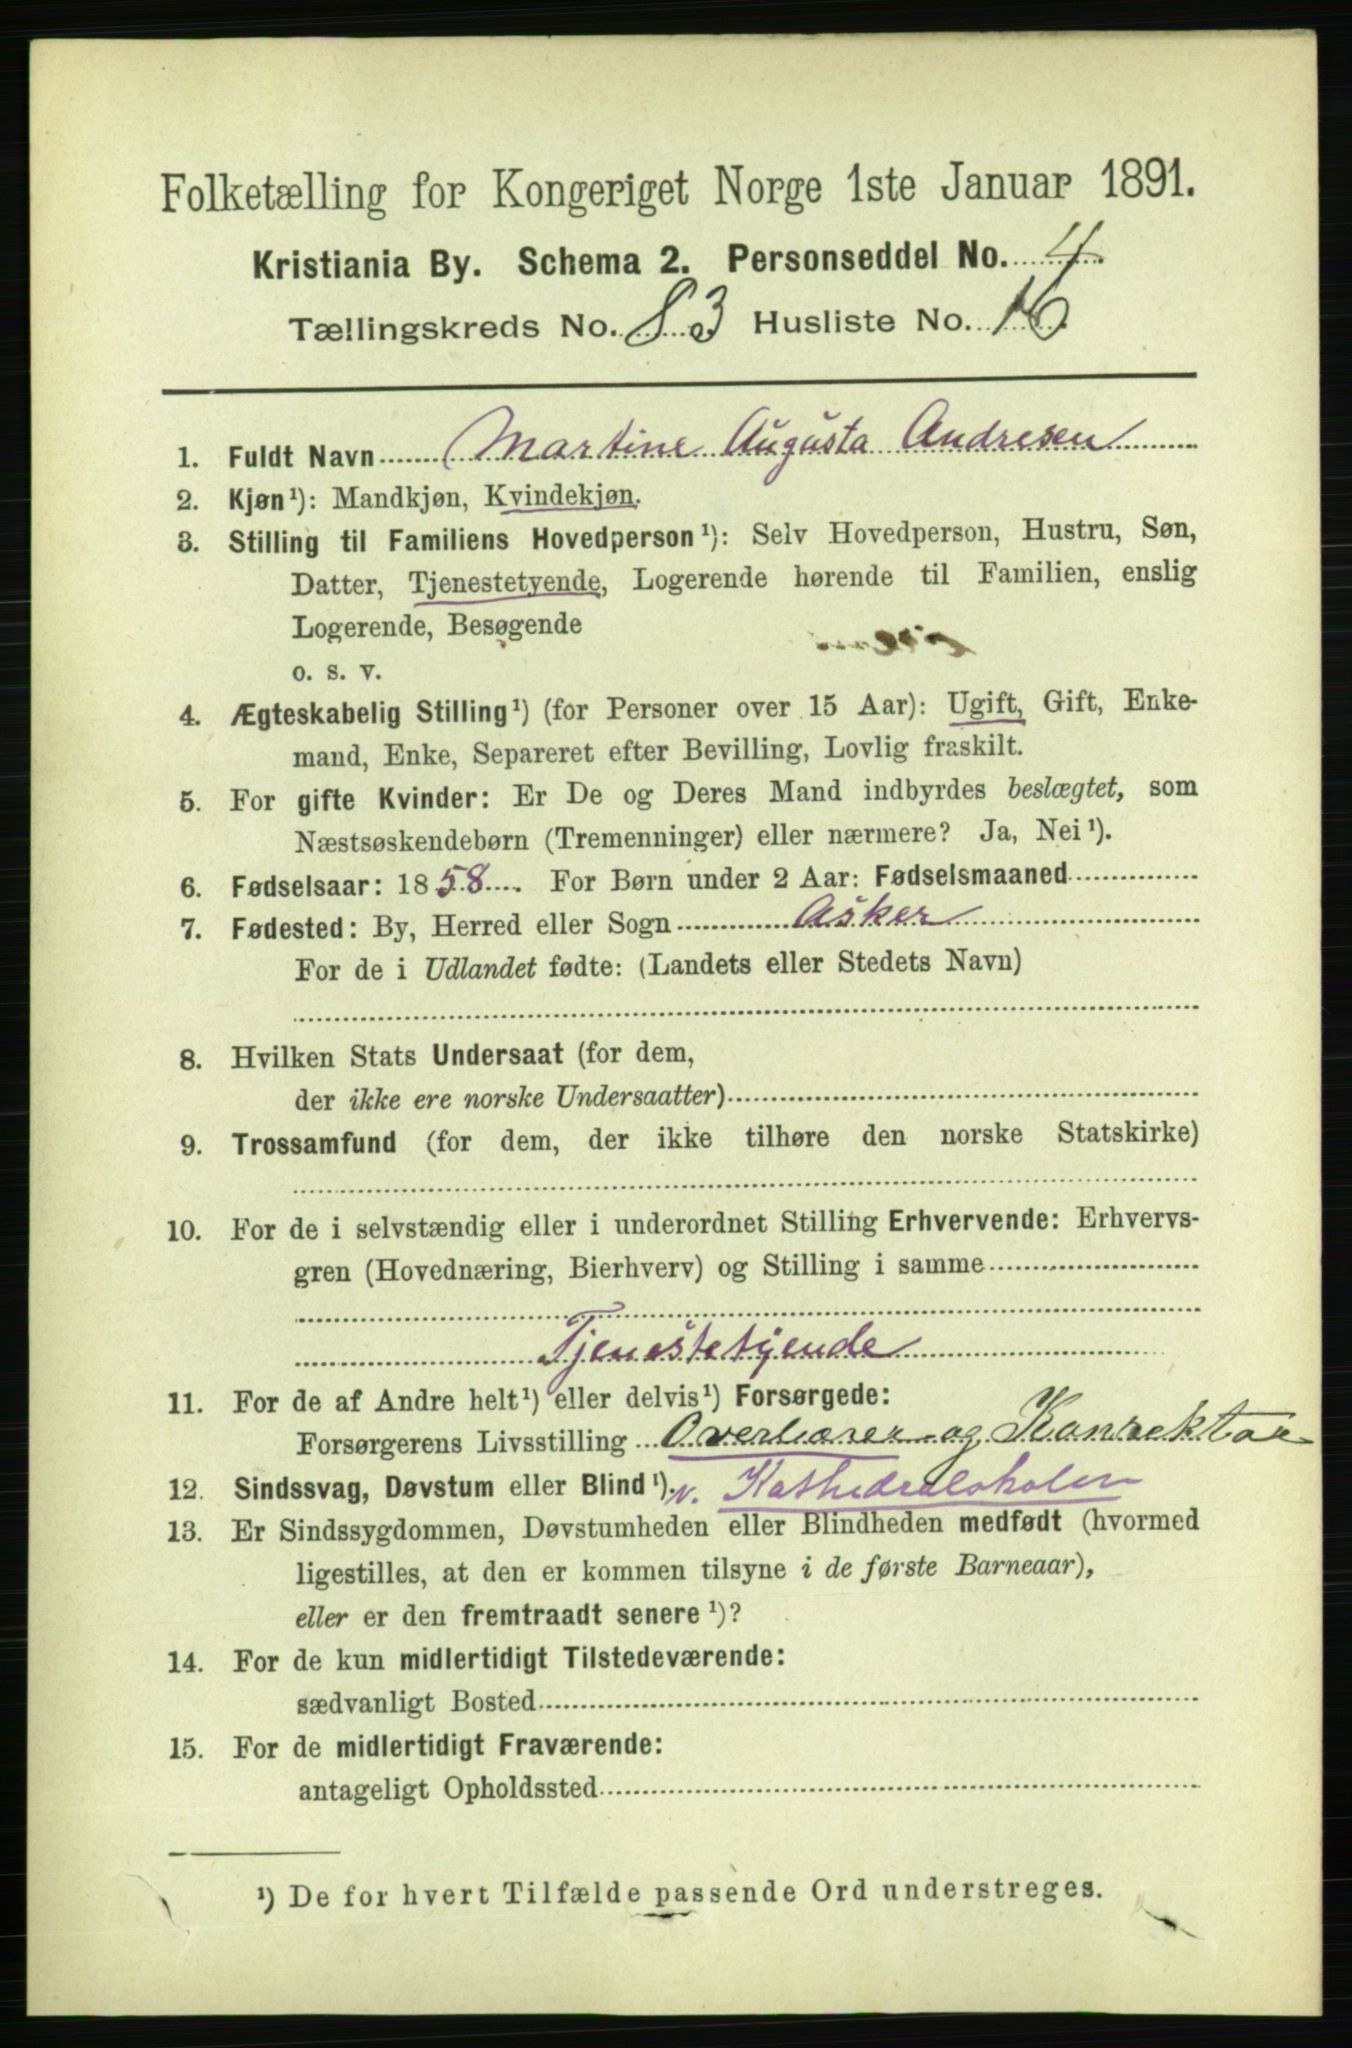 Folketælling for Kongeriget Norge 1ste Januar 1891.
Kristiania By. Schema 2. Personseddel No. 4.
Tællingskreds No. 83 Husliste No. 16.
1. Fuldt Navn Martine Augusta Andresen
2. Kjøn¹): Mandkjøn, Kvindekjøn.
3. Stilling til Familiens Hovedperson¹): Selv Hovedperson, Hustru, Søn,
Datter, Tjenestetyende, Logerende hørende til Familien, enslig
Logerende, Besøgende
o. s. v.
4. Ægteskabelig Stilling¹) (for Personer over 15 Aar): Ugift, Gift, Enke-
mand, Enke, Separeret efter Bevilling, Lovlig fraskilt.
5. For gifte Kvinder: Er De og Deres Mand indbyrdes beslægtet, som
Næstsøskendebørn (Tremenninger) eller nærmere? Ja, Nei¹).
6. Fødselsaar: 1858. For Børn under 2 Aar: Fødselsmaaned
7. Fødested: By, Herred eller Sogn Asker
For de i Udlandet fødte: (Landets eller Stedets Navn)
8. Hvilken Stats Undersaat (for dem,
der ikke ere norske Undersaatter)
9. Trossamfund (for dem, der ikke tilhøre den norske Statskirke)
10. For de i selvstændig eller i underordnet Stilling Erhvervende: Erhvervs-
gren (Hovednæring, Bierhverv) og Stilling i samme
Tjenestetyende
11. For de af Andre helt¹) eller delvis¹) Forsørgede:
Forsørgerens Livsstilling Overlærer og Konrektor
12. Sindssvag, Døvstum eller Blind¹). v. Kathedralskolen
13. Er Sindssygdommen, Døvstumheden eller Blindheden medfødt (hvormed
ligestilles, at den er kommen tilsyne i de første Barneaar),
eller er den fremtraadt senere¹)?
14. For de kun midlertidigt Tilstedeværende:
sædvanligt Bosted
15. For de midlertidigt Fraværende:
antageligt Opholdssted
¹) De for hvert Tilfælde passende Ord understreges.